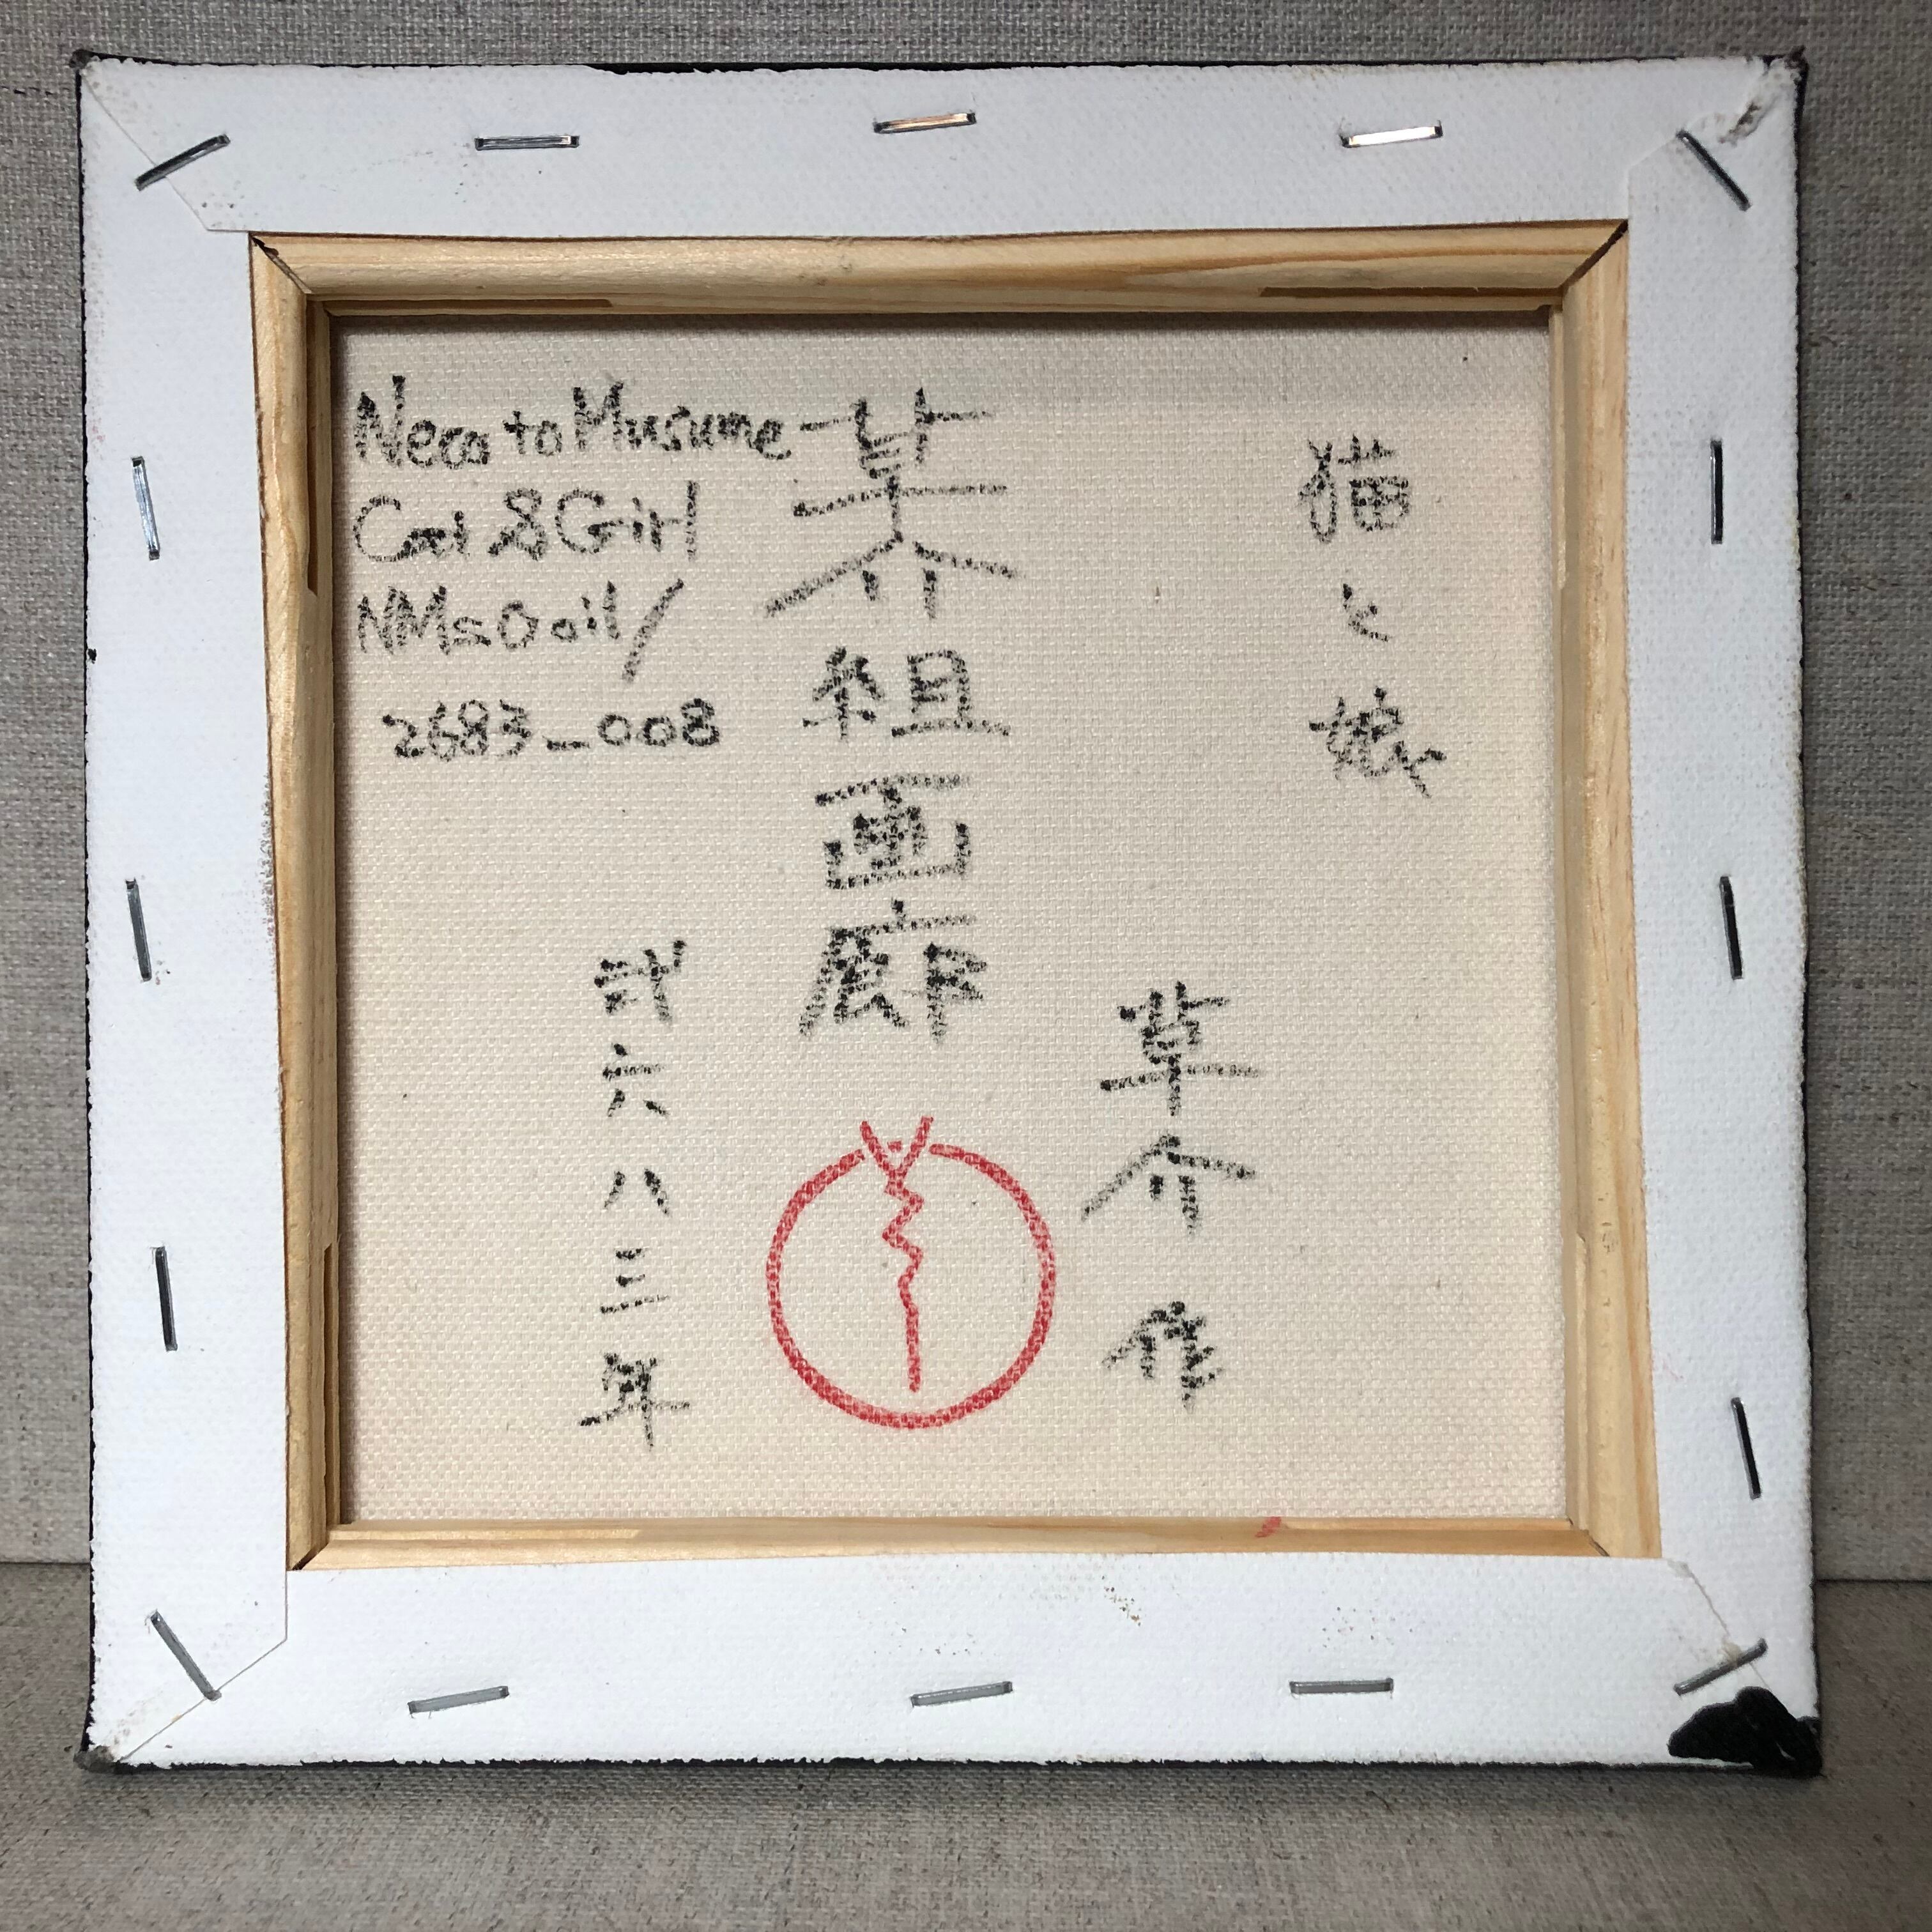 猫と娘
草介 作
草介組画廊
弐六八三年
Neco to Musume
Cat & Girl
oil/
2683_008